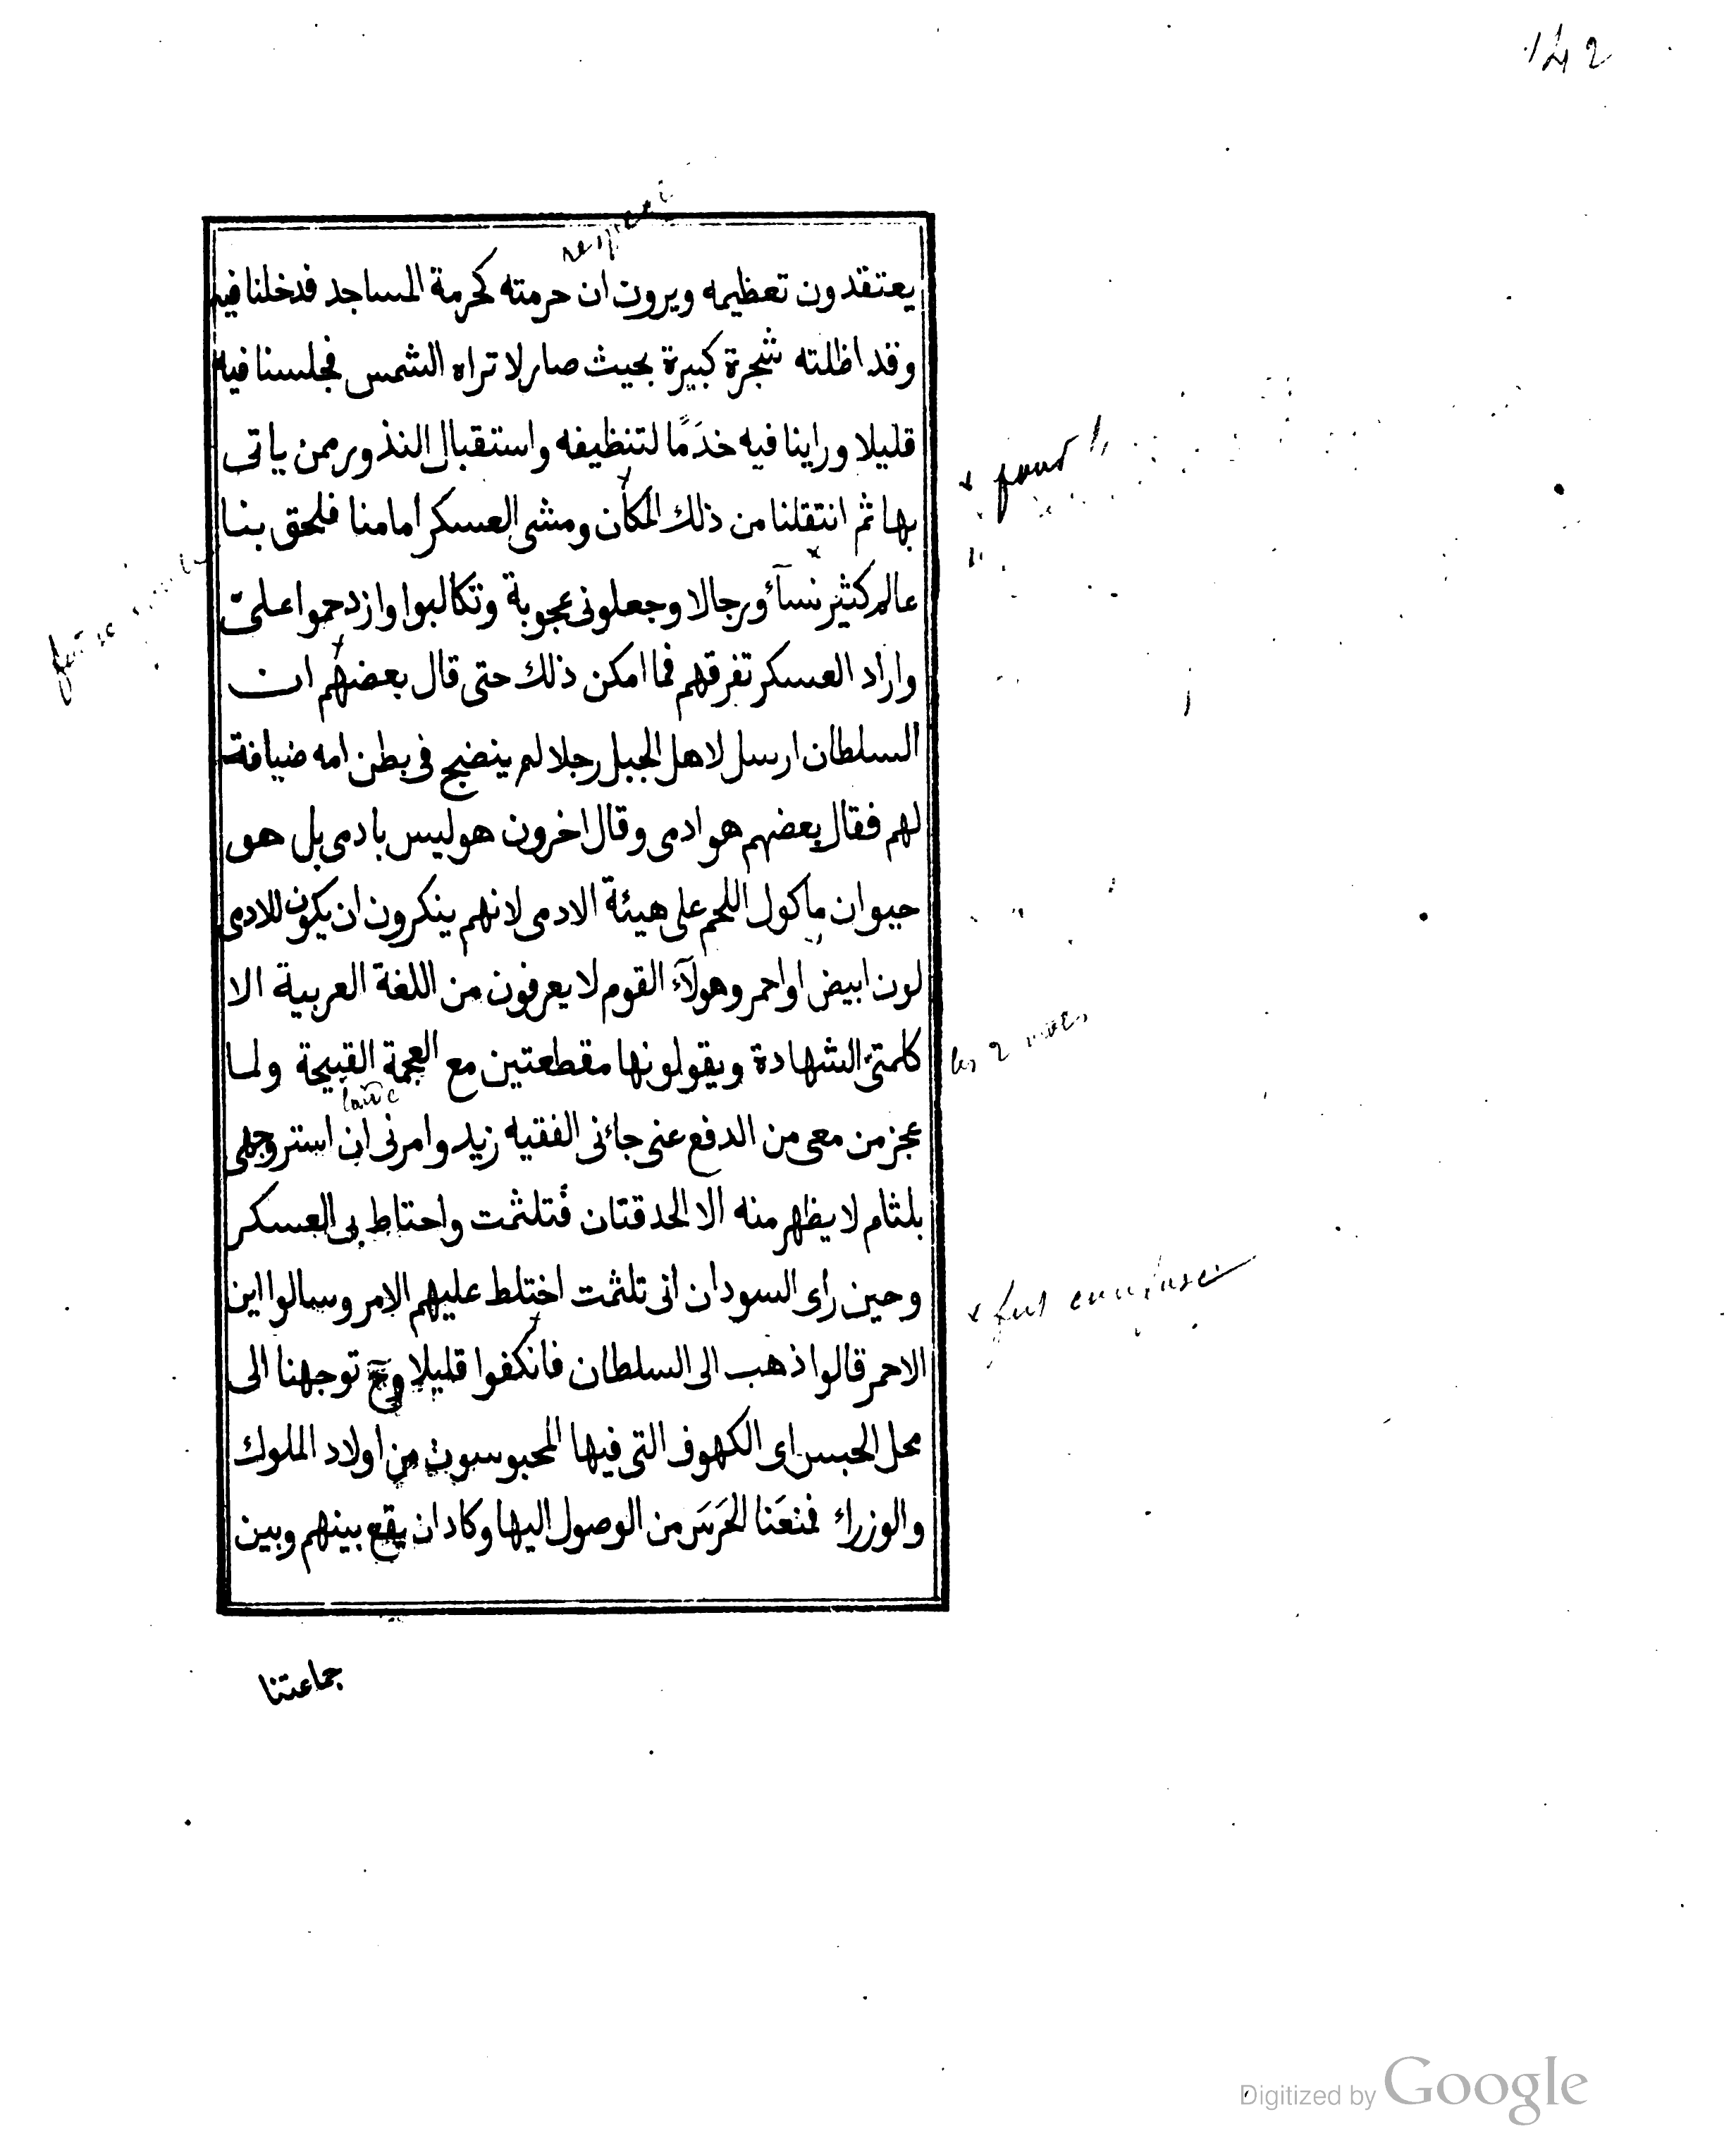 142
respect
يعتقدون تعظيمه ويرون ان حرمته كحرمة المساجد فدخلنا فيه
وقد اظلته شجرة كبيرة بحيث صار لا تراه الشمس فجلسنا فيه
قليلا وراينا فيه خدَمًا لتنظيفه واستقبال النذور ممن ياتى
pour
بها ثم انتقلنا من ذلك المكان ومشى العسكر امامنا فلحق بنا
عالم كثير نسآء ورجالا وجعلونى عجوبة وتكالبوا وازدحموا علىّ
واراد العسكر تفرقهم فما امكن ذلك حتى قال بعضهم ان
السلطان ارسل لاهل الجبل رجلا لم ينضج فى بطن امه ضيافة
لهم فقال بعضهم هو ادمى وقال اخرون هو ليس بادمى بل هو
حيوان ماكول اللحم على هيئة الادمى لانهم ينكرون ان يكون للادمى
لون ابيض او احمر وهولآء القوم لا يعرفون من اللغة العربية الا
كلمتىّ الشهادة ويقولونها مقطعتين مع العجمة القبيحة ولما
les 2
عجز من معى من الدفع عنى جائنى الفقيه زيد وامرنى ان استر وجهى
بلثام لا يظهر منه الا الحدقتان فتلثمت واحتاط بى العسكر
وحين رأى السودان انى تلثمت اختلط عليهم الامر وسالوا اين
fut confuse
الاحمر قالوا ذهب الى السلطان فانكفوا قليلا وح توجهنا الى
محل الحبس اى الكهوف التى فيها المحبوسون من اولاد الملوك
والوزراء فمنعَنا الحَرَسَ من الوصول اليها وكاد ان يقع بينهم وبين
جماعتنا
Digitized by Google